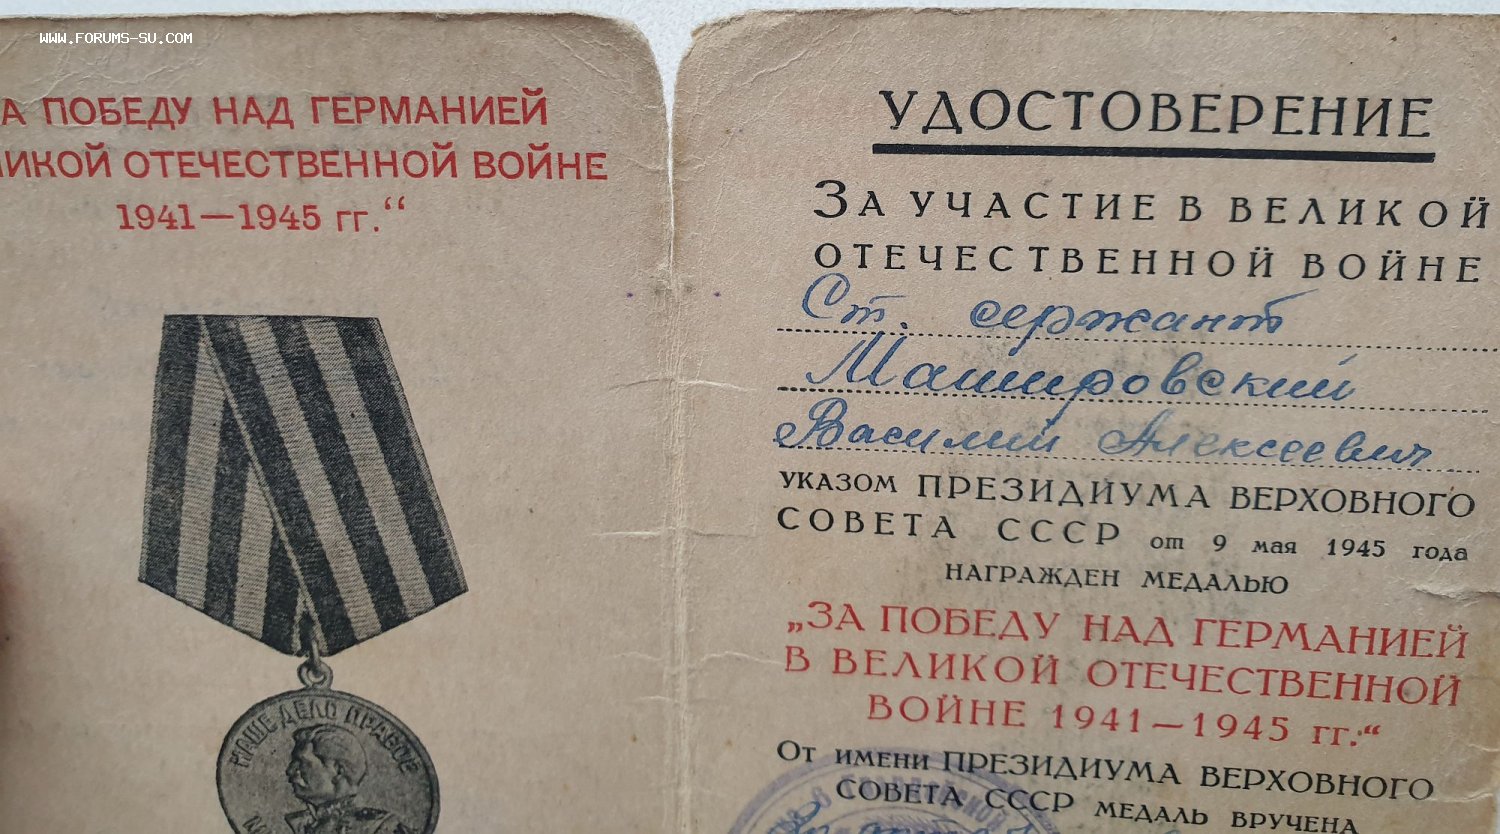 www.forums-su.com
А ПОБЕДУ НАД ГЕРМАНИЕЙ
ЛИКОЙ ОТЕЧЕСТВЕННОЙ ВОЙНЕ
1941—1945 гг.“
НАШЕ ДЕЛО ПРАВОЕ
УДОСТОВЕРЕНИЕ
ЗА УЧАСТИЕ В ВЕЛИКОЙ
ОТЕЧЕСТВЕННОЙ ВОЙНЕ
Ст. сержант
Машировский
Василий Алексеевич
УКАЗОМ ПРЕЗИДИУМА ВЕРХОВНОГО
СОВЕТА СССР от 9 мая 1945 года
НАГРАЖДЕН МЕДАЛЬЮ
„ЗА ПОБЕДУ НАД ГЕРМАНИЕЙ
В ВЕЛИКОЙ ОТЕЧЕСТВЕННОЙ
ВОЙНЕ 1941—1945 гг.“
ОТ ИМЕНИ ПРЕЗИДИУМА ВЕРХОВНОГО
СОВЕТА СССР МЕДАЛЬ ВРУЧЕНА